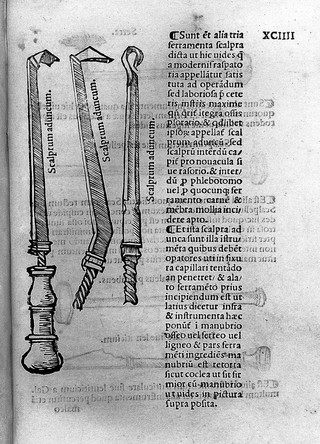 XCIIII
¶Sunt & alia tria
ferramenta scalpra
dicta ut hic uides q
a modernis raspato
ria appellātur satis
tuta ad operādum
sed laboriosa p cete
ris īstrīs maxime
integra ossis
& qdlibet
ipsoꝝ appellaſ scal
prum aduncū. sed
scalprū īterdū ca
piſ pro nouacula si
ue rasorio. & inter/
dū p phlebotomo
uel p quocunq; fer
ramento carnē &
mēbra mollia inci
dere apto.
¶Et ista scalpra ad
unca sunt illa īstru
mēta quibus debēt
opatores uti in fixu
ra capillari tentādo
an penetret. & ala/
to ferramēto prius
incipiendum est ut
latius dicetur infra
& instrumenta hæc
ponūſ ī manubrio
osseo uel ferreo uel
ligneo & pars ferra
mēti ingrediēs ma
nubriū est retorta
sicut coclea ut sit fir
mior cū manubrio
ut uides in pictura
supra posita.
Scalprum aduncum.
Scalprum aduncum.
Scalprum aduncum.